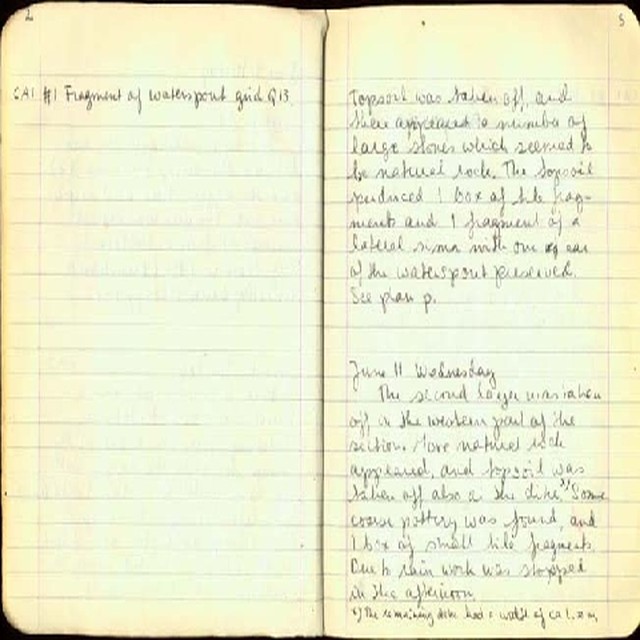 CA1 #1 Fragment of waterspout grid Q13
5
Topsoil was taken off, and
there appeared a number of
large stones which seemed to
be natural rock. The topsoil
produced 1 box of tile frag-
ments and 1 fragment of a
lateral sima with one ear
of the waterspout preserved.
See plan p.
June 11 Wednesday
The second layer was taken
off in the western part of the
section. More natural rock
appeared, and topsoil was
taken off also in the dike.*) Some
coarse pottery was found, and
1 box of small tile fragments.
Due to rain work was stopped
in the afternoon.
*) The remaining dike had a width of ca 1.